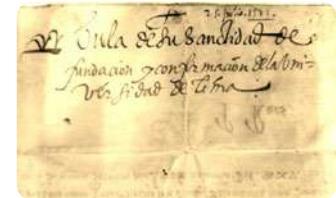 25. Julio. 1571.
Bula de Su Sanctidad de
fundacion y confirmacion de la Vni-
versidad de Lima